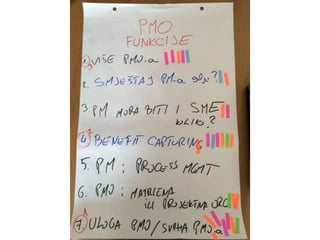 PMO
FUNKCIJE
1. VIŠE PMO.a
2. SMJEŠTAJ PM.a
3. PM MORA BITI I SME
KOLIKO?
4. BENEFIT CAPTURING
5. PM : PROCESS MGMT
6. PMO : MATRICNA
ILI PROJEKTNA ORG
7. ULOGA PMO / SVRHA PMO.a